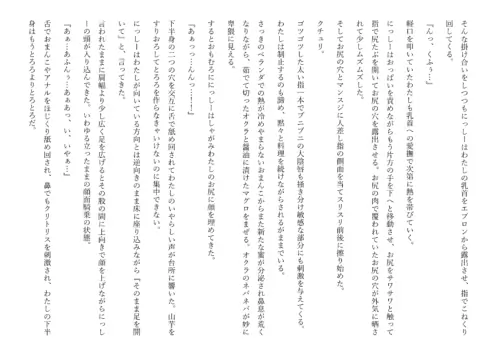 そんな掛け合いをしつつもにっしーはわたしの乳首をエプロンから露出させ、指でこねくり
回してくる。
『んっ、くふぅ…』
軽口を叩いていたわたしも乳首への愛撫で次第に熱を帯びていく。
にっしーはおっぱいを責めながらもう片方の手を下へと移動させ、お尻をサワサワと触って
指で尻たぶを開いてお尻の穴を露出させる。お尻の肉で覆われていたお尻の穴が外気に晒さ
れて少しムズムズした。
そしてお尻の穴とマンスジに人差し指の側面を当てスリスリ前後に擦り始めた。
ゴツゴツした太い指一本でプニプニの大陰唇も掻き分け敏感な部分にも刺激を与えてくる。
クチュリ。
わたしは制止するのも諦め、黙々と料理を続けながらされるがままでいる。
さっきのベランダでの熱が冷めやまらないおまんこからまた新たな蜜が分泌され鼻息が荒く
なりながら、茹でて切ったオクラと醤油に漬けたマグロをまぜる。オクラのネバネバが妙に
卑猥に見える。
するとおもむろににっしーはしゃがみわたしのお尻に顔を埋めてきた。
『あぁっっ…んっ━━！！』
下半身の二つの穴を交互に舌で舐め回されてわたしのいやらしい声が台所に響いた。山芋を
すりおろしてとろろを作らなきゃいけないのに集中できない。
にっしーはわたしが向いている方向とは逆向きのまま床に座り込みながら『そのまま足を開
いて』と、言ってきた。
言われたままに肩幅より少し広く足を広げるとその股の間に上向きで顔を上げながらにっし
ーの頭が入り込んできた。いわゆる立ったままの顔面騎乗の状態。
『あぁ…あふんぅ…あぁあっ、い、いやぁ…』
舌でおまんこやアナルをほじくり舐め回され、鼻でもクリトリスを刺激され、わたしの下半
身はもうとろろよりとろとろだ。